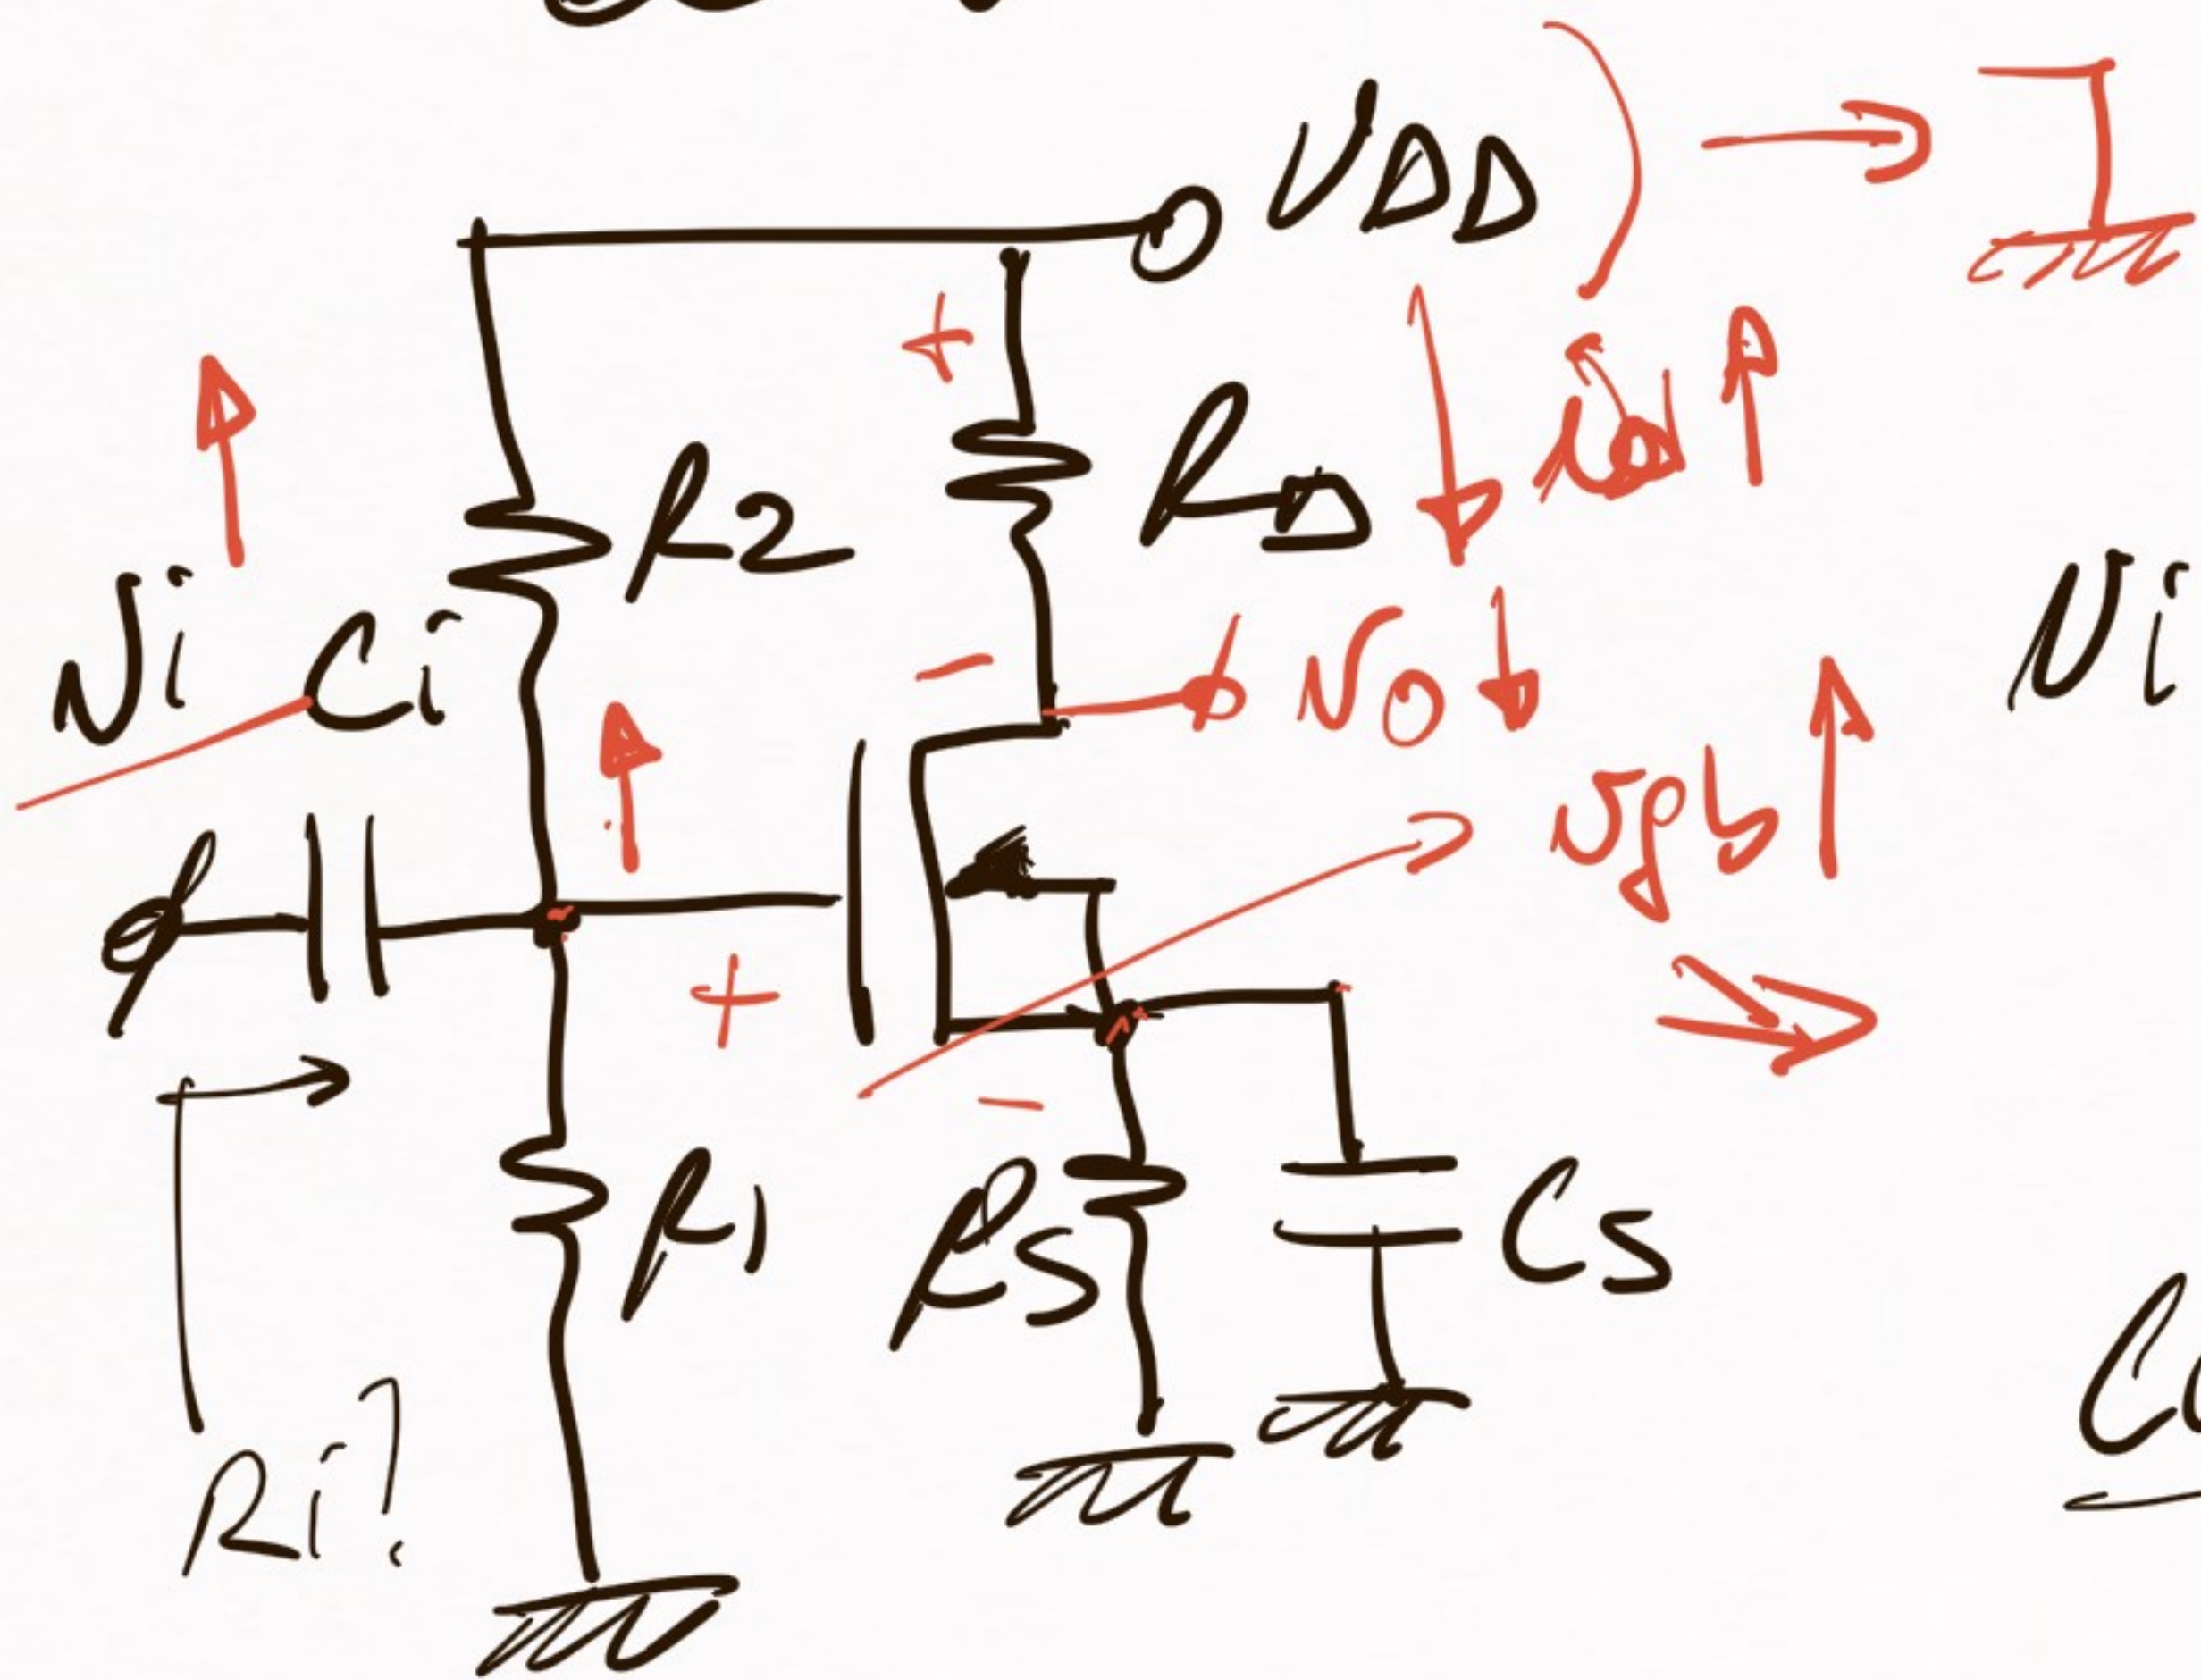 VDD
id
R2
RD
Vi
Ci
+
-
Vo
Vi
vgs
+
-
R1
RS
CS
Ri?